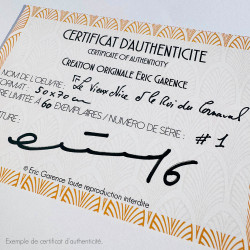 CERTIFICAT D'AUTHENTICITÉ
CERTIFICATE OF AUTHENTICITY
CREATION ORIGINALE ERIC GARENCE
NOM DE L'OEUVRE : Le Vieux Nice & le Roi du Carnaval
FORMAT : 50 x 70 cm
RE LIMITÉE A 60 EXEMPLAIRES / NUMÉRO DE SÉRIE : # 1
TURE :
16
© Eric Garence Toute reproduction interdite
Exemple de certificat d'authenticité.